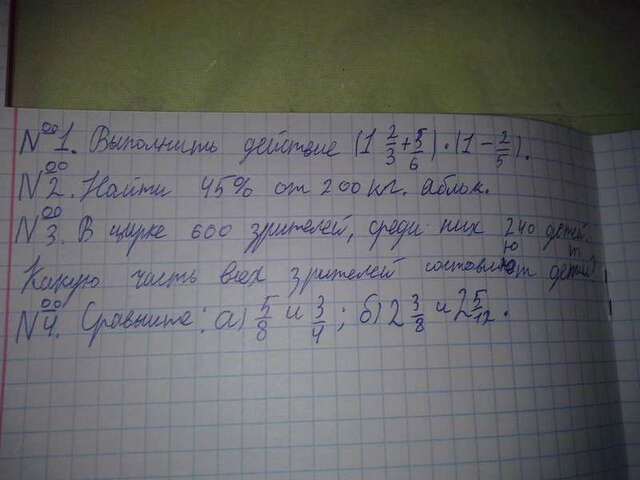 №1. Выполнить действие (1 2/3 + 5/6) · (1 - 2/5).
№2. Найти 45% от 200 кг. яблок.
№3. В цирке 600 зрителей, среди них 240 детей.
Какую часть всех зрителей составляют дети?
№4. Сравните: а) 5/8 и 3/4; б) 2 3/8 и 2 5/12.